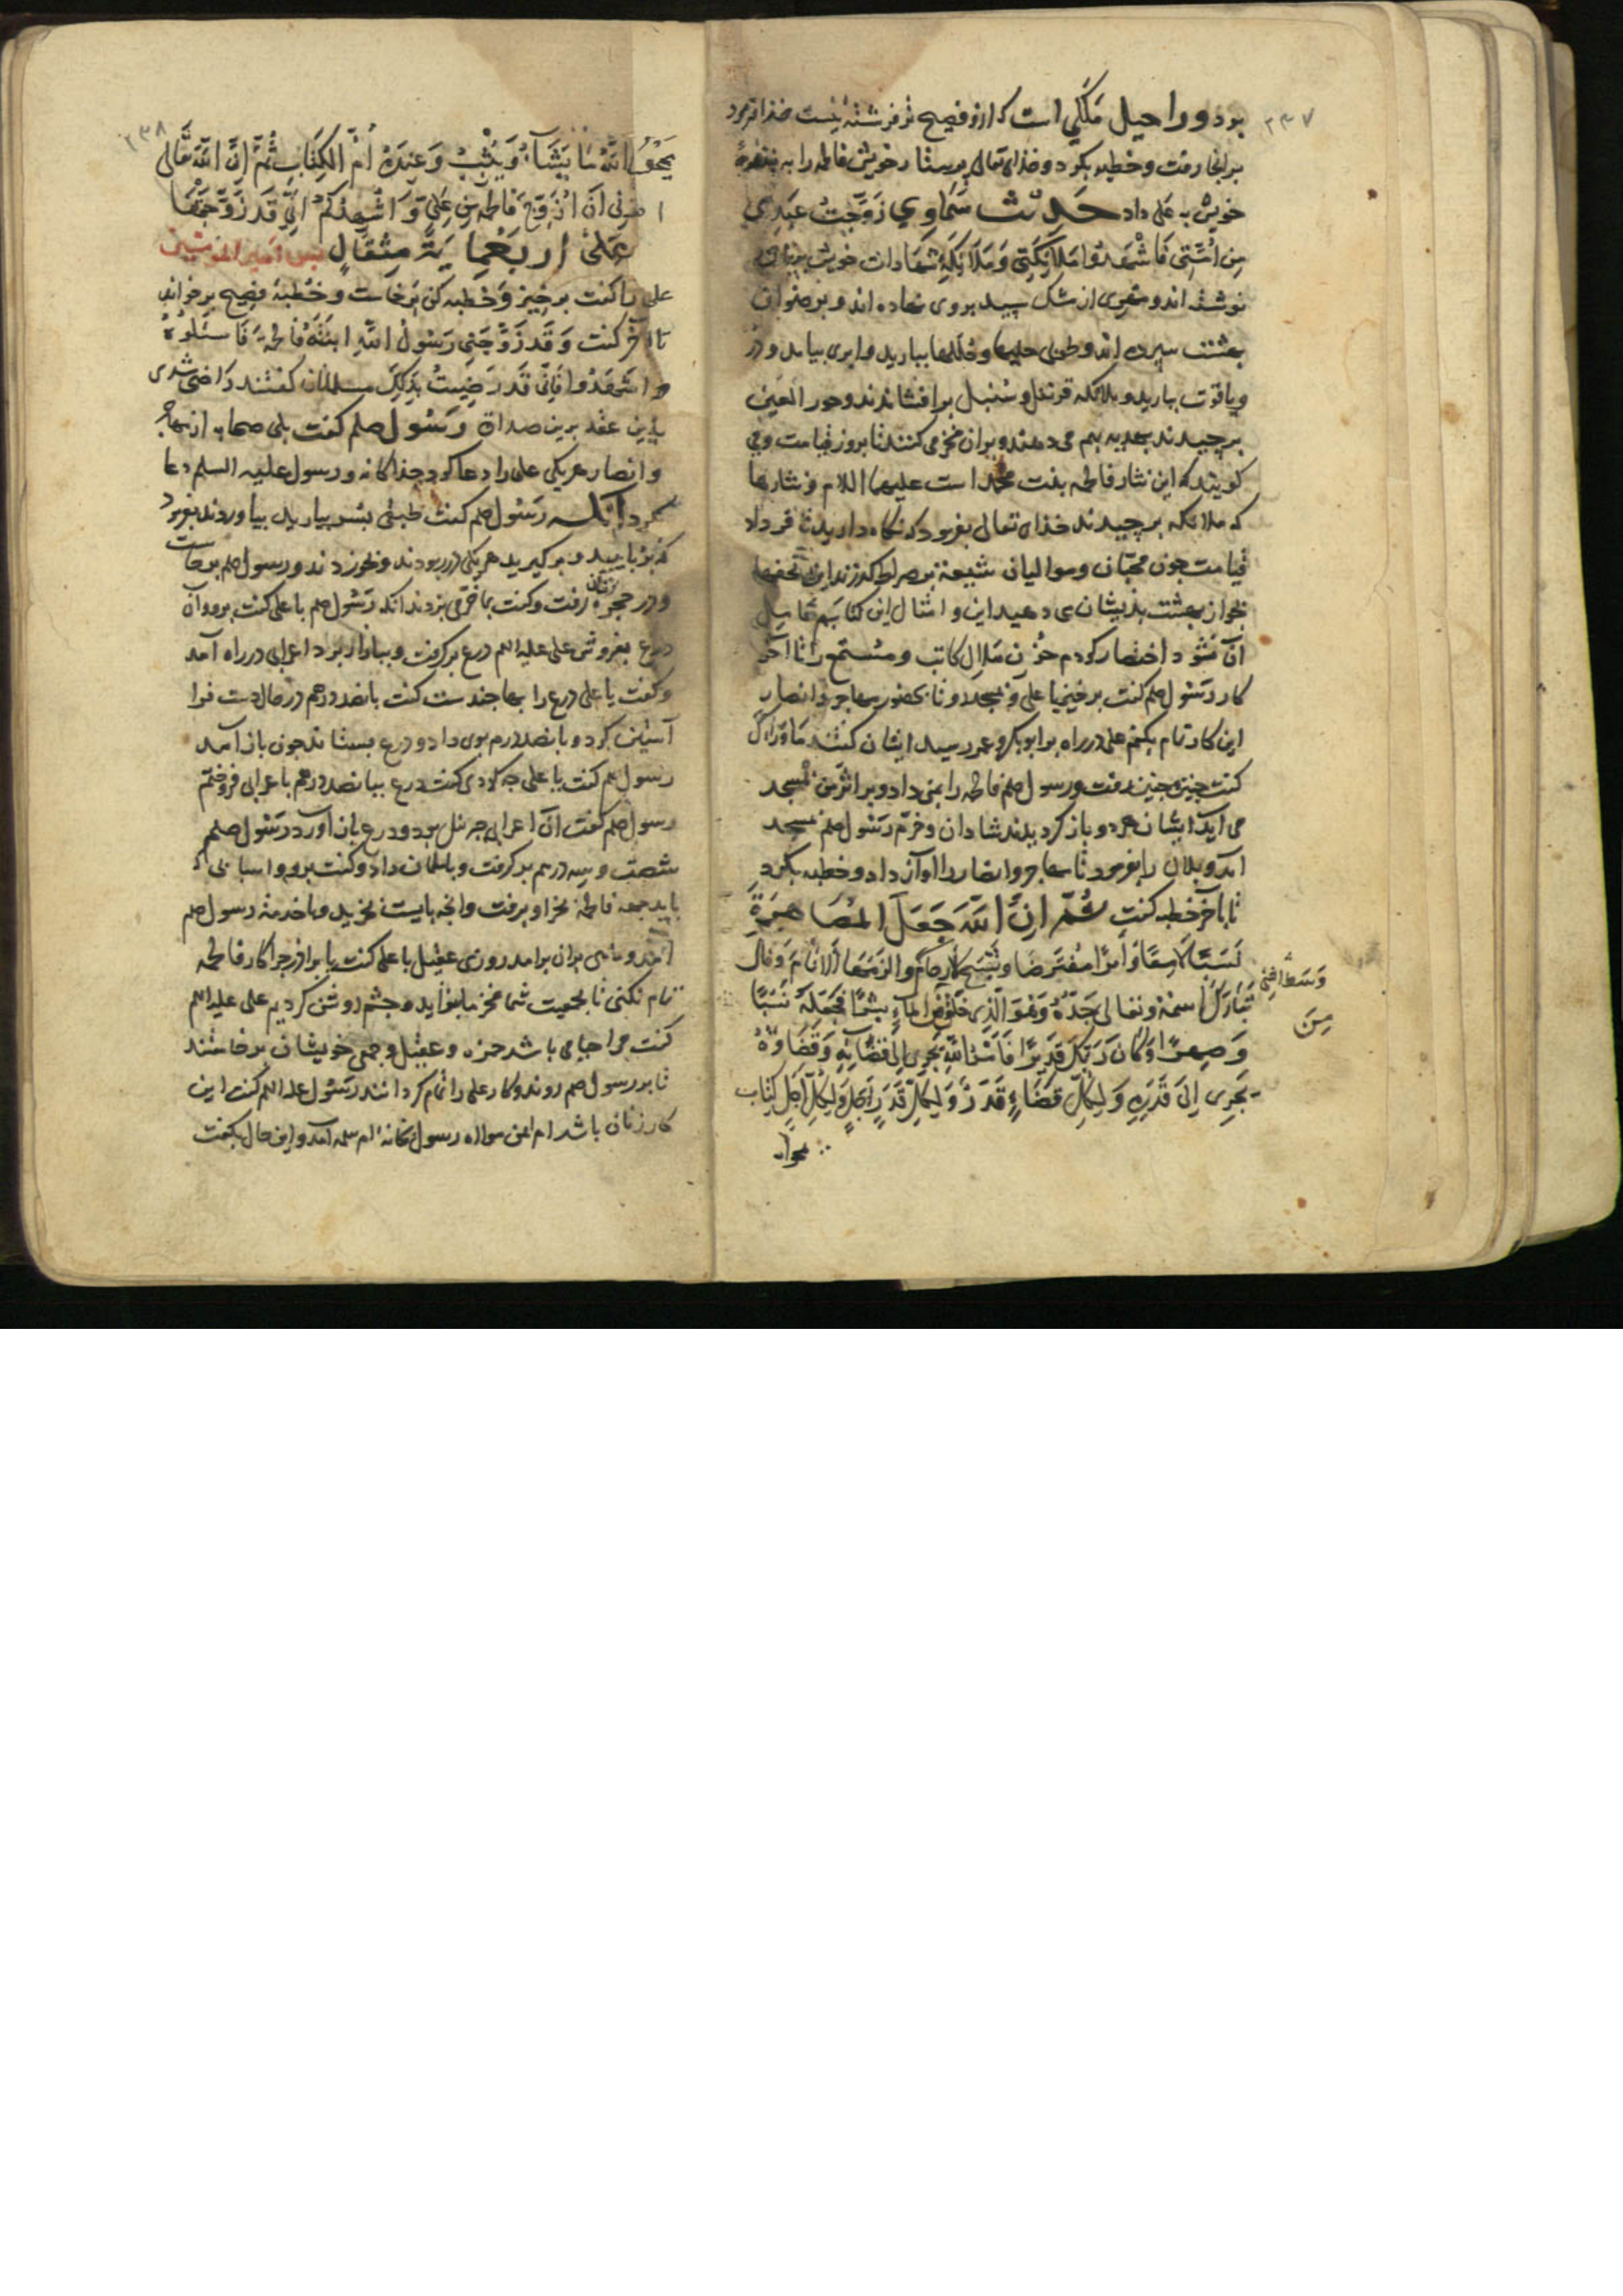 ۲۳۷
بود و راحیل ملکی است که ازو فصیح تر فرشته نیست خدا فرمود
بر انجا رفت و خطبه بکرد و خدای تعالی پرستار خویش فاطمه را به بنده
خویش به علی داد حدیث سماوی زَوَّجتُ عَبدِی
مِن اَمَتی فَاشْهَدُوا مَلائِکَتی و ملائکه شهادات خویش
نوشته اند و مهری از مشک سپید بروی نهاده اند و برضوان
بهشت سپرده اند و طوبی حلیها و حلّلها ببارید و ابری بیامد و درّ
و یاقوت ببارید و ملائکه قرنفل و سنبل برافشاندند و حور العین
برچیدند بهدیه بهم می دهند و بران فخر می کنند تا بروز قیامت و می
کویند که این نثار فاطمه بنت محمد است علیهما السلام و نثارها
که ملائکه برچیدند خدای تعالی بفرمود که نگاه دارید تا فردای
قیامت جون محبّان و موالیان شیعه بر صراط گذرند این تحفها
بجواز بهشت بذیشان می دهید این و امثال این کتابهم
آن نشود اختصار کردم خوف ملال کاتب و مستمع را تا آخر
کار رسول صلم کفت برخیز یا علی و بمسجد رو تا بحضور مهاجر و انصار
این کار تمام بکنم علی در راه بر ابوبکر و عمر رسید ایشان کفتند ما وراک
کفت جنین جنین رفت و رسول صلم فاطمه را بمن داد و بر اثر من بمسجد
می آید ایشان هر دو باز کردیدند شادان و خرّم رسول صلم بمسجد
آمد و بلال را بفرمود تا مهاجر و انصار را آواز داد و خطبه بکرد
تا باخر خطبه کفت ثُمّ اِنَّ اللّٰهَ جَعَلَ المُصَاهَرَةَ
نَسَبًا لاحِقًا وَ اَمْرًا مُفْتَرَضًا وَ شَبَّحَ الارحام و الزَمَهَا الاَنامَ وَ قال
تَبَارَکَ اسمُهُ و تعالی جَدُّهُ وَ هُوَ الّذی خَلَقَ مِنَ الماءِ بَشَرًا فَجَعَلَهُ نَسَبًا
وَ صِهرًا وَ کانَ رَبُّکَ قَدِیرًا فَاَمرُ اللّٰهِ یَجری اِلیٰ قَضَائِهِ وَ قَضَاؤُهُ
یَجری اِلیٰ قَدَرِهِ وَ لِکُلِّ قَضَاءٍ قَدَرٌ وَ لِکُلِّ قَدَرٍ اَجَلٌ وَ لِکُلِّ اَجَلٍ کِتَاب
مِنَ
۲۳۸
یَمْحُو اللّٰهُ مَا یَشَاءُ وَ یُثْبِتُ وَ عِندَهُ اُمُّ الکِتَابِ ثُمَّ اِنَّ اللّٰهَ تَعَالی
امرنی اَنْ اُزَوِّجَ فَاطِمَةَ مِن عَلیٍّ وَ اُشهِدُکُم اَنّی قَد زَوَّجتُهَا
عَلیٰ اَربَعمِایَةِ مِثقَالٍ پس امیر المؤمنین
علی را کفت برخیز و خطبه کن برخاست و خطبهٔ فصیح برخواند
تا آخر کفت وَ قَد زَوَّجَنی رَسُولُ اللّٰهِ ابنَتَهُ فَاطِمَةَ فَاسئَلُوهُ
وَ اشهَدُوا فَاِنّی قَد رَضِیتُ بِذٰلِکَ مسلمانان کفتند راضی شدی
بذین عقد برین صداق رَسُول صلم کفت بلی صحابه از مهاجر
و انصار هریکی علی را دعا کرد جذاکانه و رسول علیه السلم دعا
کرد آنکه رَسُول صلم کفت طبقی بسر بیارید بیاوردند بفرمود
که برباییید و برکیرید هریکی در ربودند و بخوردند و رسول صلم برخاست
و در حجرهٔ زنان رفت و کفت تا دف می زدند انکه رَسُول صلم با علی کفت برو و آن
درع بفروش علی علیه السلم درع برکرفت و ببازار برد اعرابی در راه آمد
و کفت یا علی درع را بها جندست کفت پانصد درهم در حال دست فرا
آستین کرد و پانصد درم بوی داد و درع بستاند جون باز آمد
رسول صلم کفت یا علی جه کردی کفت درع بپانصد درهم باعرابی فروختم
رسول صلم کفت آن اعرابی جبرئل بود و درع باز آورد رَسُول صلم
شصت و سه درم برکرفت و بسلمان داد و کفت برو و اسبابی که
باید جهة فاطمه بخر او برفت و انجه بایست بخرید و باخدمة رسول صلم
آمد و ماهی بران برامد روزی عقیل با علی کفت یا برادر جرا کار فاطمه
تمام نکنی تا بجمعیت شما فخر ما بیفزاید و جشم روشن کردیم علی علیه السلم
کفت مرا حیا می باشد حمزه و عقیل و جمعی خویشان برخاستند
تا بر رسول صلم روند و کار علی را تمام کردانند رَسُول علیه السلم کفت این
کار زنان باشد ام ایمن مولاة رسول بخانهٔ ام سلمه آمد و این حال بکفت